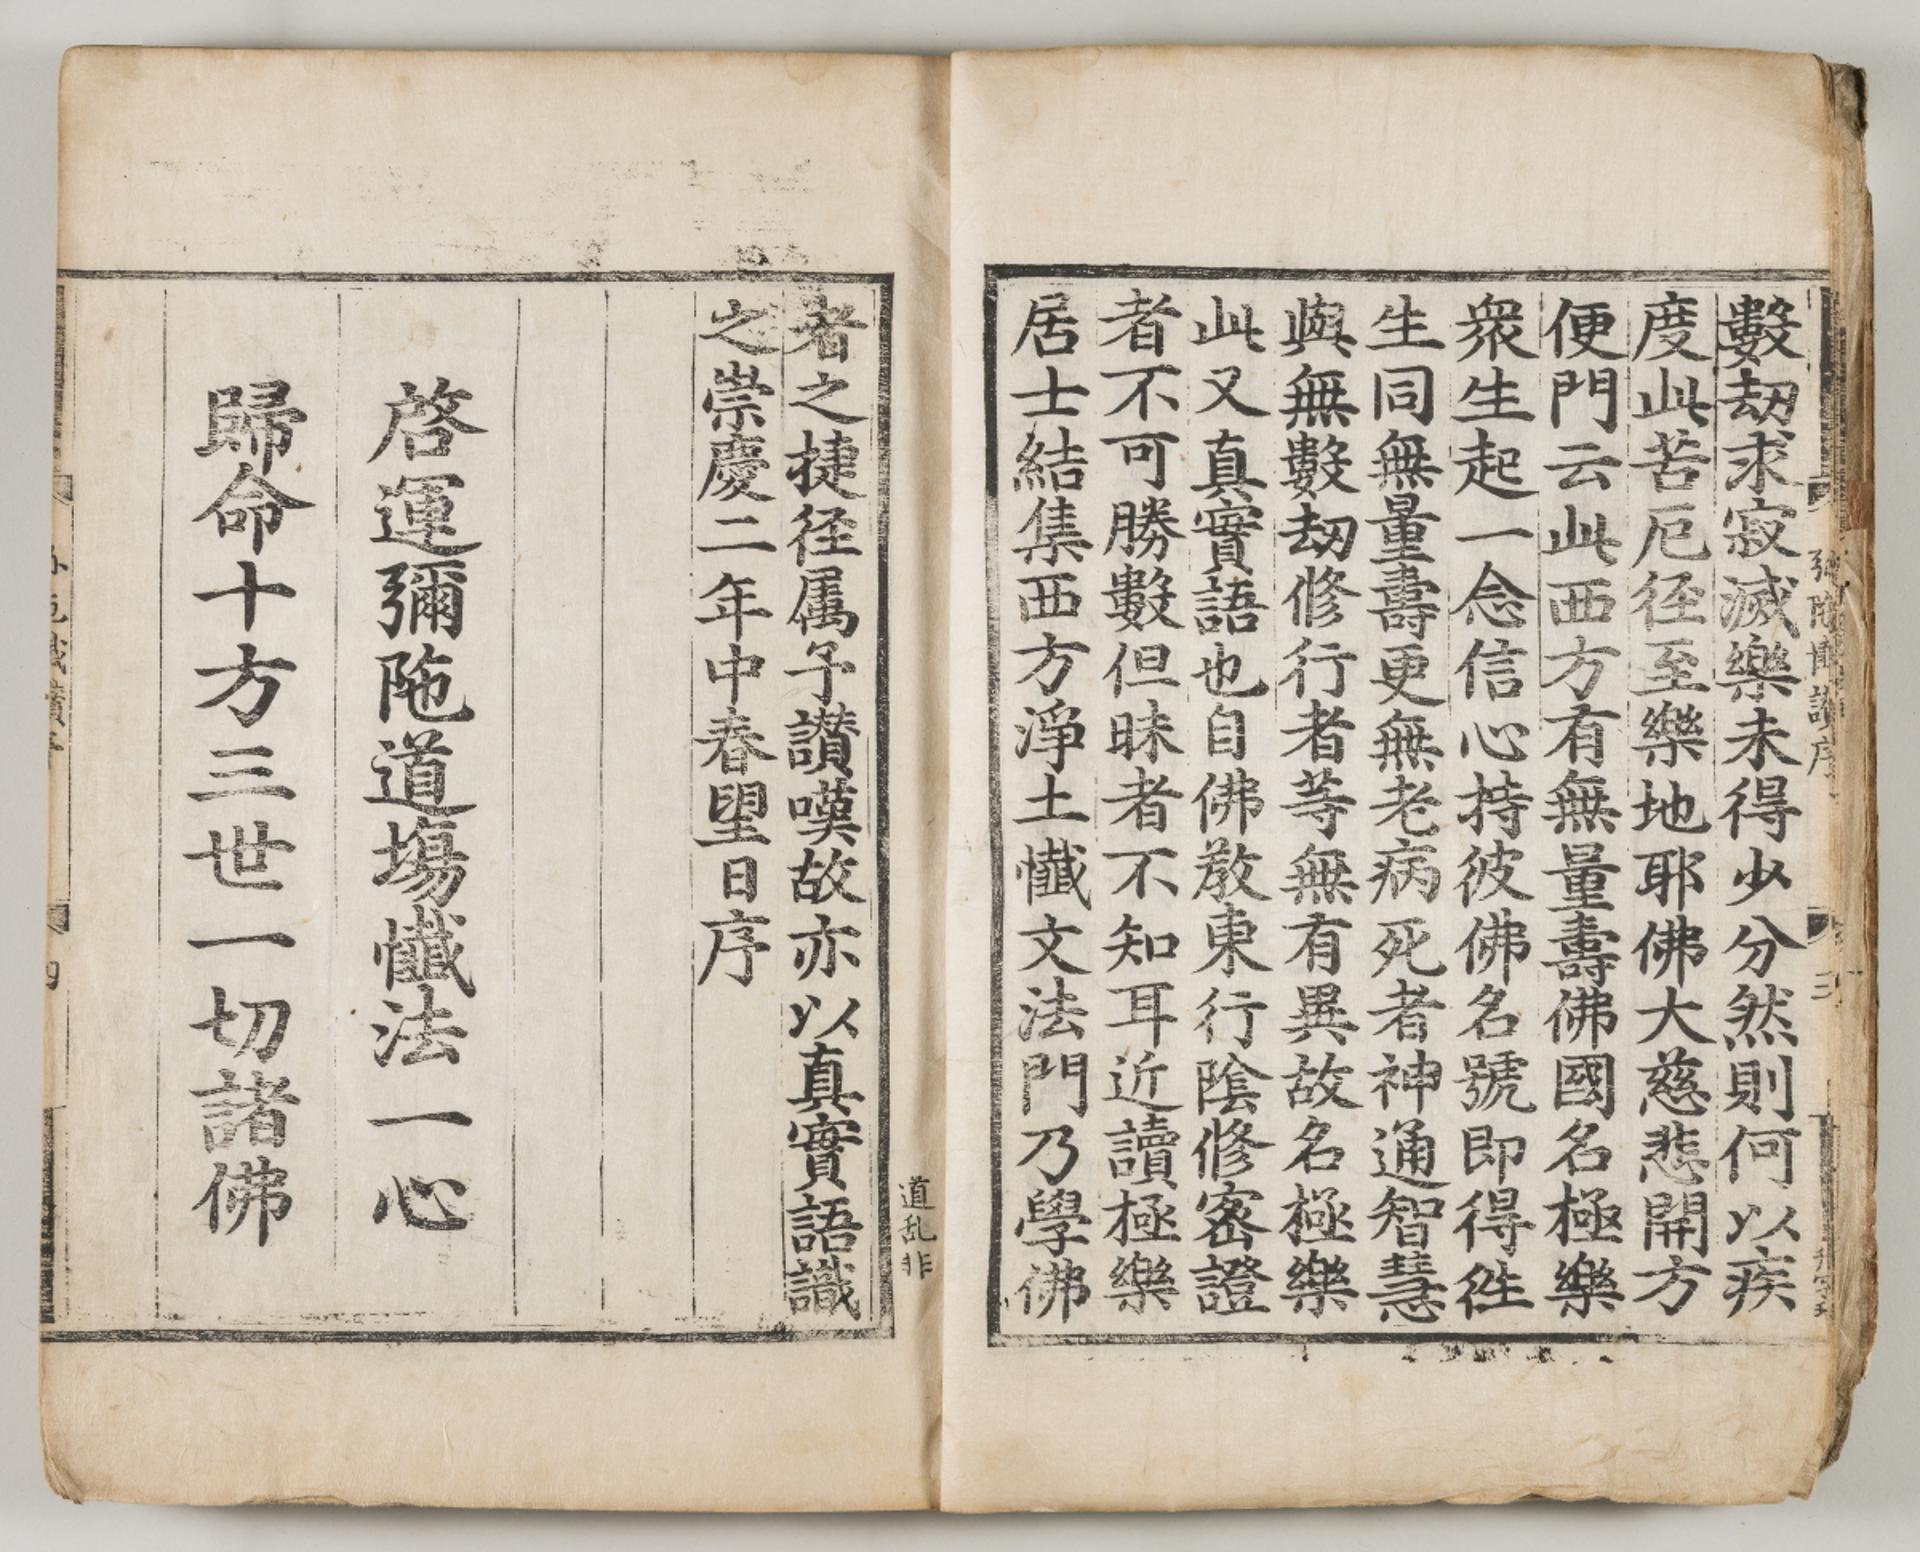 數劫求寂滅樂未得少分然則何以疾
度此苦厄径至樂地耶佛大慈悲開方
便門云此西方有無量壽佛國名極樂
衆生起一念信心持彼佛名號即得徃
生同無量壽更無老病死者神通智慧
與無數劫修行者等無有異故名極樂
此又真實語也自佛教東行陰修密證
者不可勝數但昧者不知耳近讀極樂
居士結集西方淨土懺文法門乃學佛
者之捷径属予讃嘆故亦以真實語識
之崇慶二年中春朢日序
道乱非
啓運彌陁道場懺法一心
歸命十方三世一切諸佛